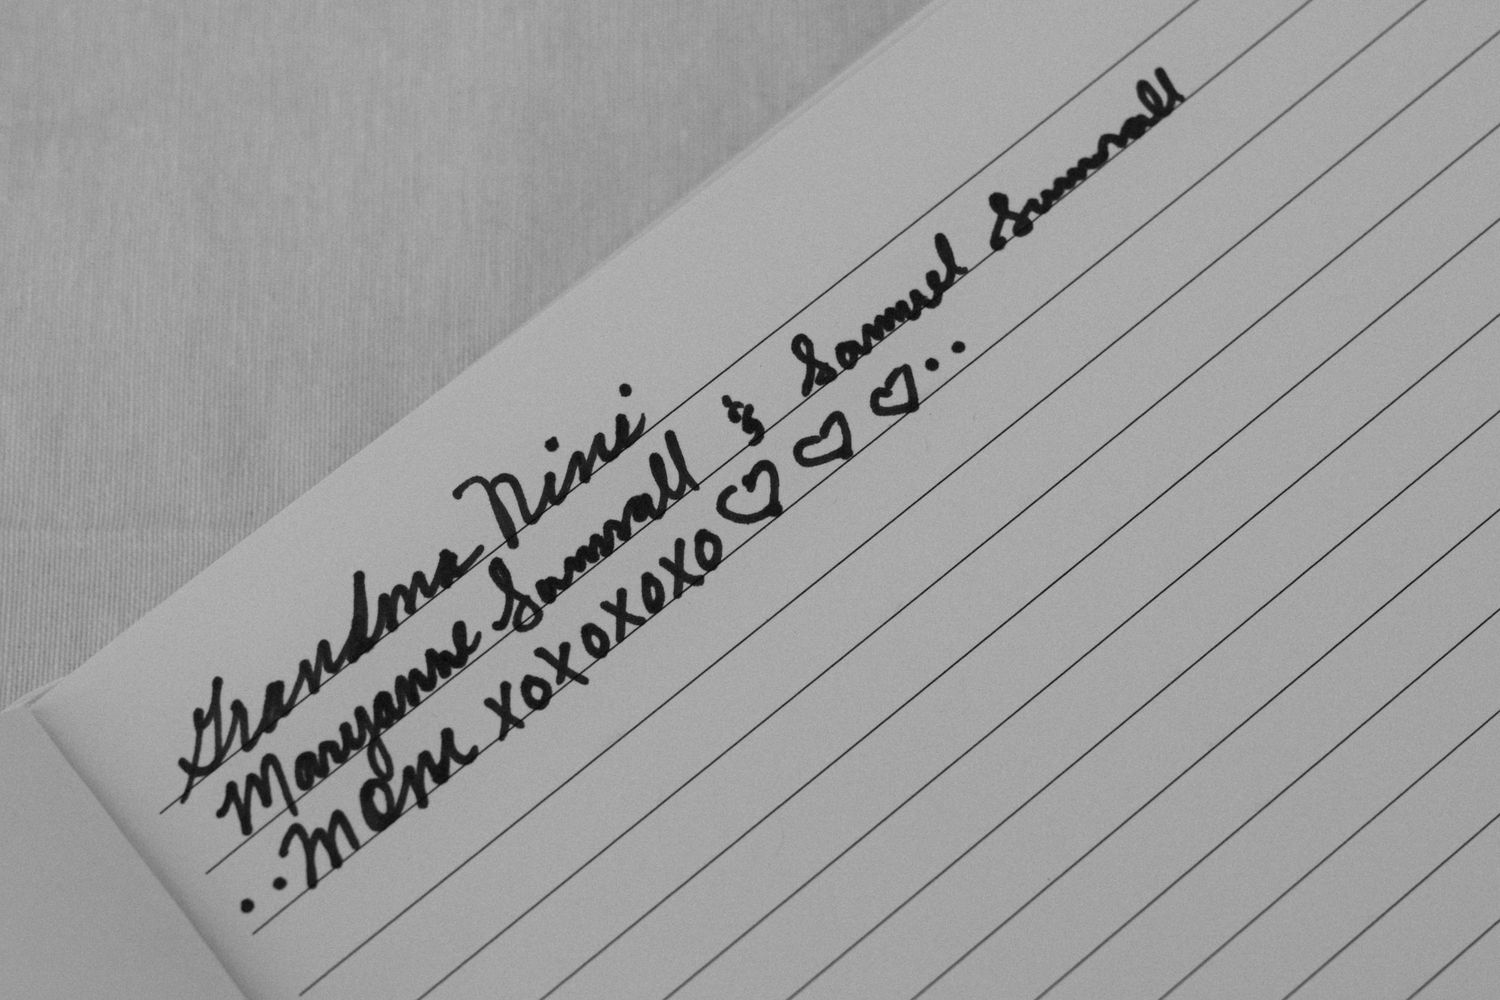 Grandma Nini
Maryanne Sumrall & Samuel Sumrall
..Mom xoxoxoxo ♡ ♡ ♡..